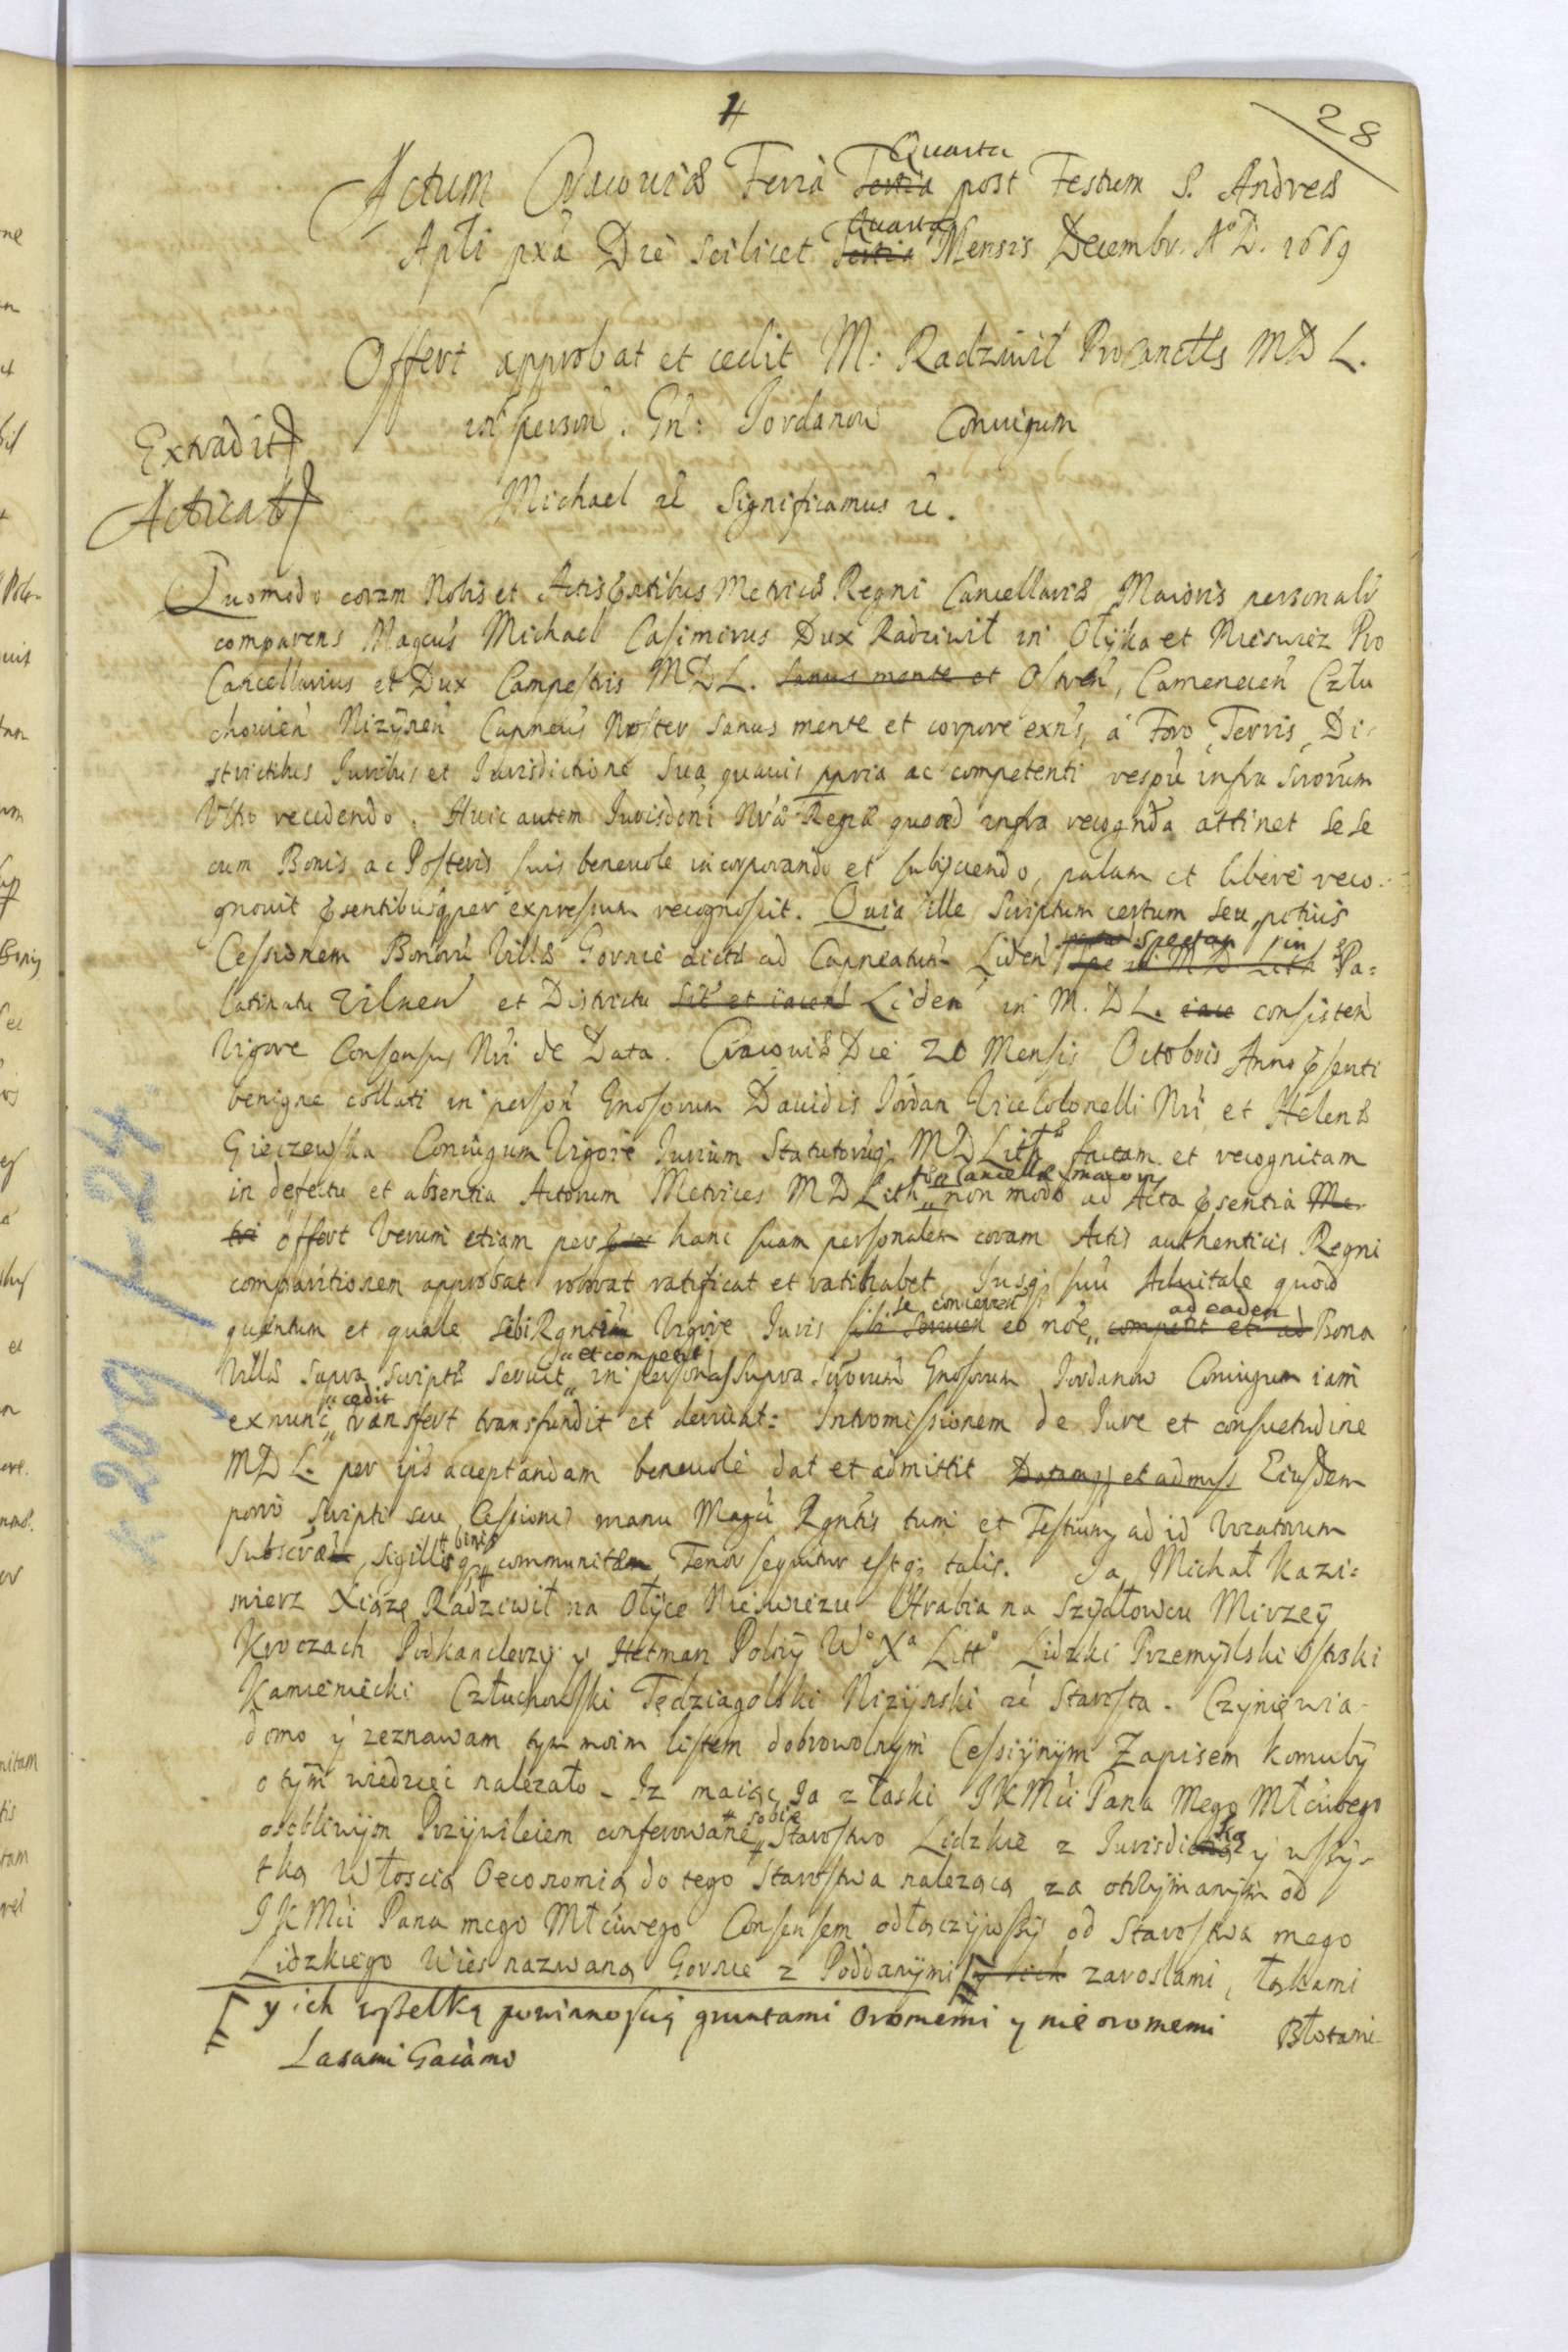 4
28
Actum Cracoviæ Feria Quarta post Festum S. Andreæ
Apli pxã Die scilicet Quarta Mensis Decembr. A° D. 1669
Offert approbat et cedit M: Radziwił Procancells MDL.
in person. Gn: Jordanow Coniugum
Extradit
Acticat
Michael rê Significamus rê.
Quomodo coram Nobis et Actis pntibus Metrices Regni Cancellariæ Maioris personalr
comparens Magcus Michael Casimirus Dux Radziwił in Ołyka et Nieswiez Pro
Cancellarius et Dux Campestris MDL. sanus mente et Ostren, Camenecen Człu
chowien Nizynen Capneus Noster sanus mente et corpore exns, à Foro, Terris, Di-
strictibus Juribus et Jurisdictione sua quavis ppria ac competenti respũ infra scrorum
Ultro recedendo. Huic autem Jurisdoni Nræ Regiæ quoad infra recognda attinet sese
cum Bonis ac Posteris suis benevole incorporando et subijciendo, palam et libere reco-
gnovit psentibusq per expressum recognoscit. Quia ille scriptum certum seu potius
Cessionem Bonorũ Villæ Gornie dictæ ad Capneatum Liden spectan in Pa-
latinatu Vilnen et Districtu sit et iacend Liden in M. DL. iace consisten
Vigore Consensus Nri de Data. Cracoviæ Die 20 Mensis Octobris Anno psenti
benigne collati in person Gnosorum Davidis Jordan Vicecolonelli Nri et Helenæ
Gieczewska Coniugum Vigore Jurium Statutorũq MDLithæ factam et recognitam
in defectu et absentia Actorum Metrices MD Lith Cancellæ maioris non modo ad Acta psentia Me-
tri offert Verum etiam per hanc suam personalem coram Actis authenticis Regni
comparitionem approbat roborat ratificat et ratihabet Jusq suũ Advitale quod
quantum et quale sibi Rgnti Vigore Juris se concernen eo noe competit et ad ad eadem Bona
Villæ supra scriptæ servit et competit in personas supra scrorum Gnosorum Jordanow Coniugum iam
exnunc cedit transfert transfundit et derivat: Intromissionem de Jure et consuetudine
MDL. per ijs acceptandam benevole dat et admittit Datamq et admiss Eiusdem
porro scripti seu Cessionis manu Magci Rgntis tum et Testium ad id Vocatorum
subscræ sigillisq binis communitæ Tenor sequitur estq talis. Ja Michał Kazi-
mierz Xiąze Radziwił na Ołyce Nieswiezu Hrabia na Szydłowcu Mirzey
Kroczach Podkanclerzy y Hetman Polny W° X° Litt° Lidzki Przemyslski Ostrski
Kamieniecki Człuchowski Tędziagolski Nizynski rê Starosta. Czynię wia-
domo y zeznawam tym moim listem dobrowolnym Cessijnym Zapisem komuby
o tym wiedziec nalezało. Iz maiąc Ja z łaski JKMci Pana Mego Młciwego
osobliwym Przywileiem conferowane sobie Starostwo Lidzkie z Jurisdictią y wszy-
tką Włoscią Oeconomią do tego Starostwa nalezącą za otrzymanym od
JKMci Pana mego Młciwego Consensem odłączywszy od Starostwa mego
Lidzkiego Wies nazwaną Gornie z Poddanymi y ich zaroslami, łąkami
y ich wszelką powinnoscią gruntami oromemi y nie oromemi Błotami
Lasami Gaiàmi
R 209 / L 24